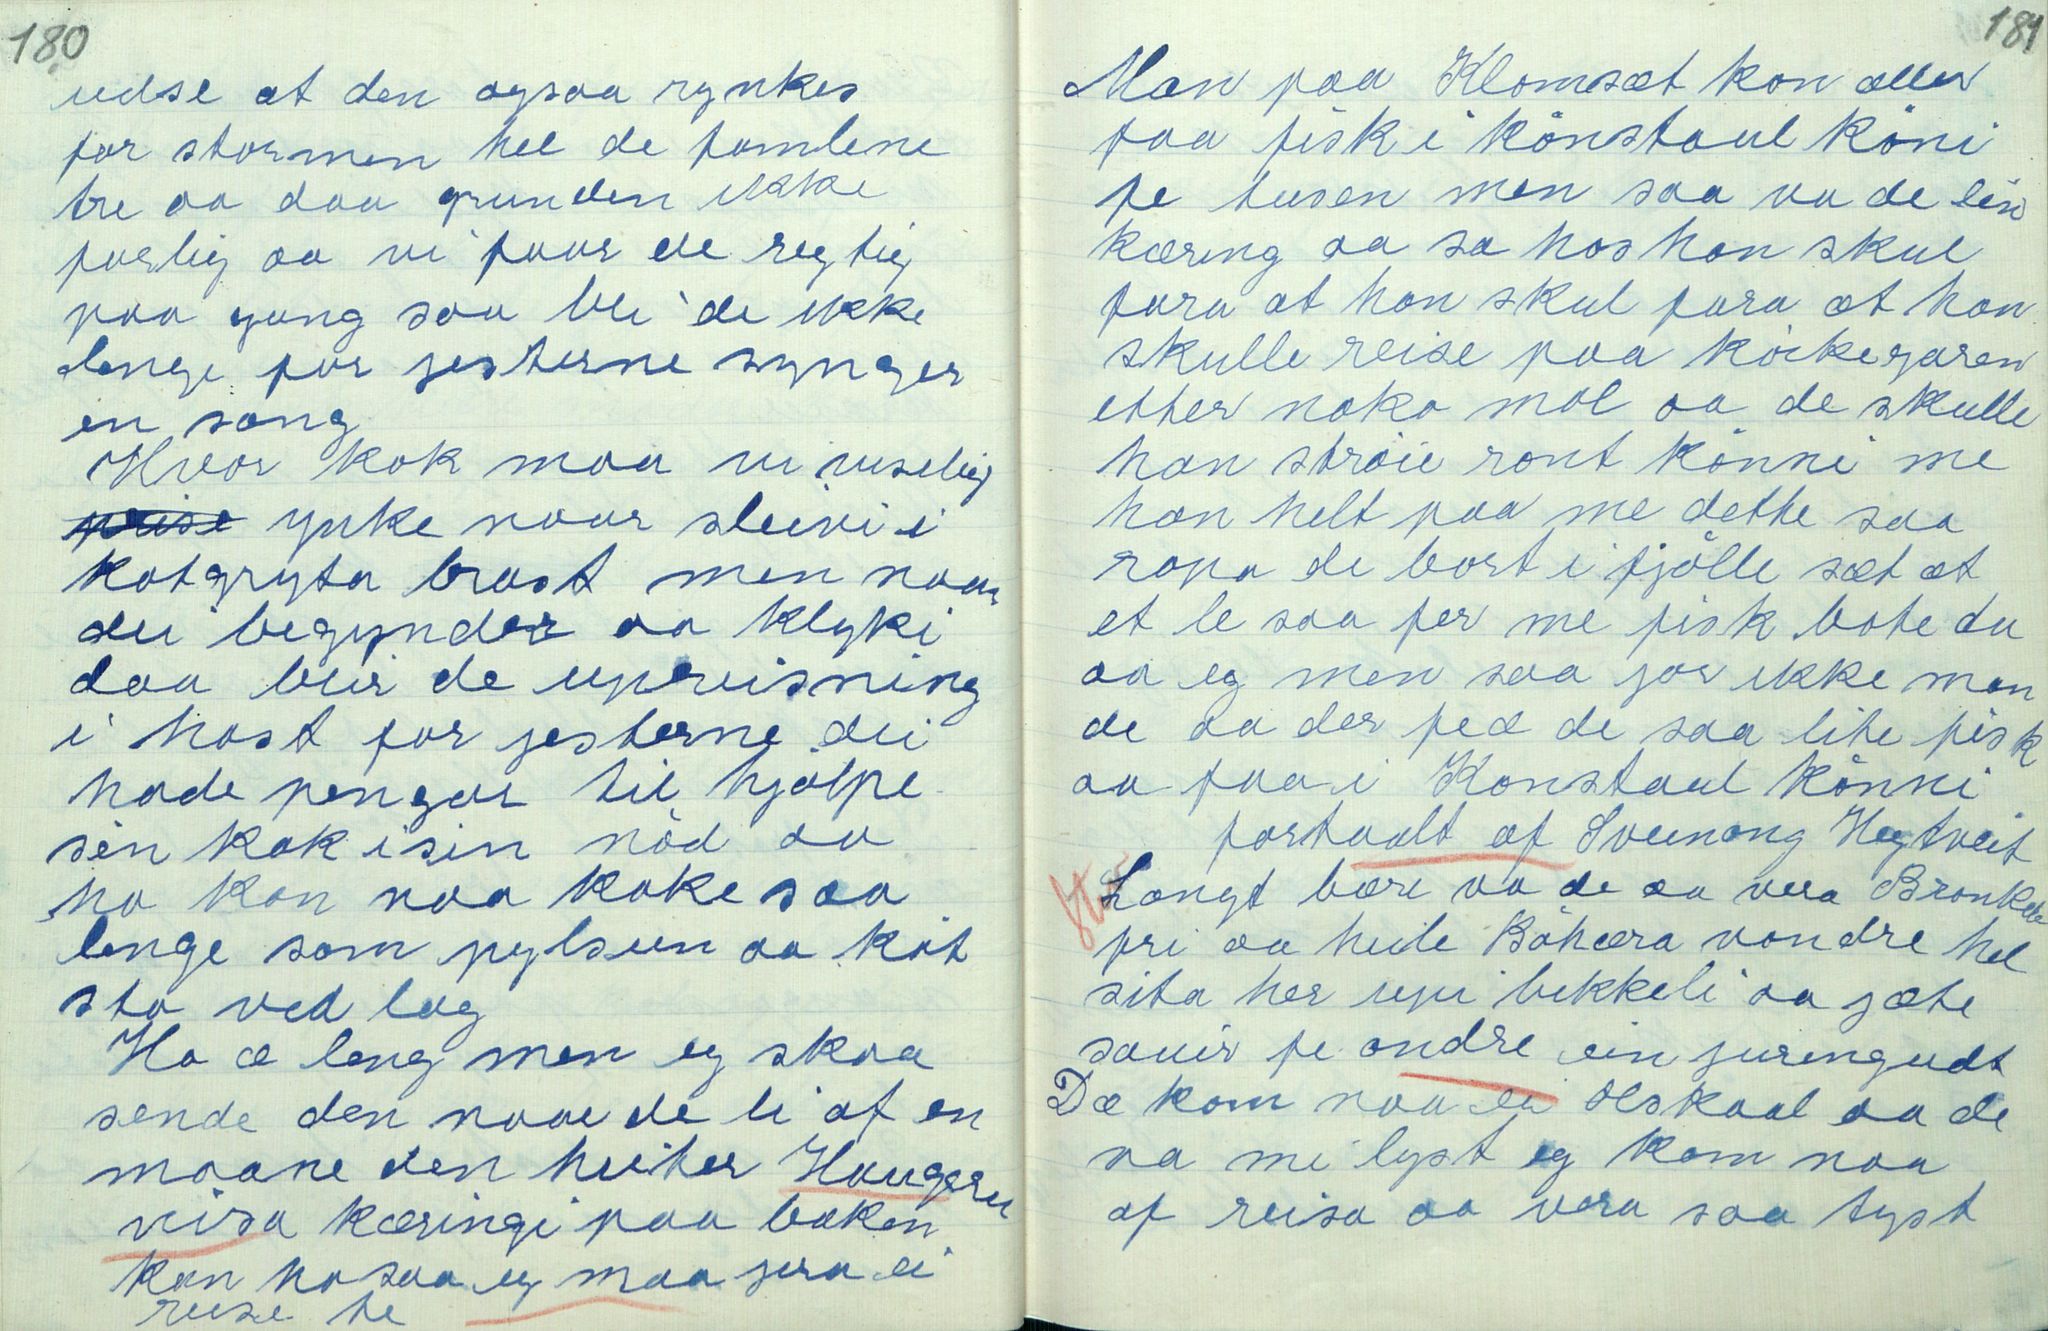 180
udse at den ogsaa rynkes
for stormen hel de famlene
tre aa daa grunden ikke
farlig aa vi faar de regtig
paa gang saa bli de ikke
lenge for jesterne synger
en sang
Hvor kok maa vi viselig
ynke naar sleivi i
kotgryta brast men naar
dei begynder aa klyki
daa bleir de upreisning
i hast for jesterne dei
hade pengar til hjølpe
sin kok i sin nöd aa
ho kan naa koke saa
lenge som pylsun aa köt
sta ved lag
Ho æ leng men eg skaa
sende den naae de li af en
maane den heiter Haugeru
visa kæringi paa baken
kan ho saa eg maa jera ei
reise te
181
Man paa Klomsæt kan aller
faa fisk i könstaul köni
fe tusen men saa va de ein
kæring aa sa hos han skul
fara at han skul fara at han
skulle reise paa köckegaren
etter noko mol aa de skulle
han ströie ront könni me
han helt paa me dette saa
ropa de bort i fjölle sæt at
et le saa fer me fisk bote du
aa eg men saa jor ikke man
de aa der fec de saa lite fisk
aa faa i Konstaul könni
fortaalt af Sveinong Hegtveit
Langt bære va de aa vera Bronkeba
fri aa heile Böhæra vondre hel
sita her upi bikkeli aa jæte
sauir fe andre ein juringudt
Dæ kom naa ei olskaal aa de
va mi lyst eg kom naa
af reisa aa vera saa tyst